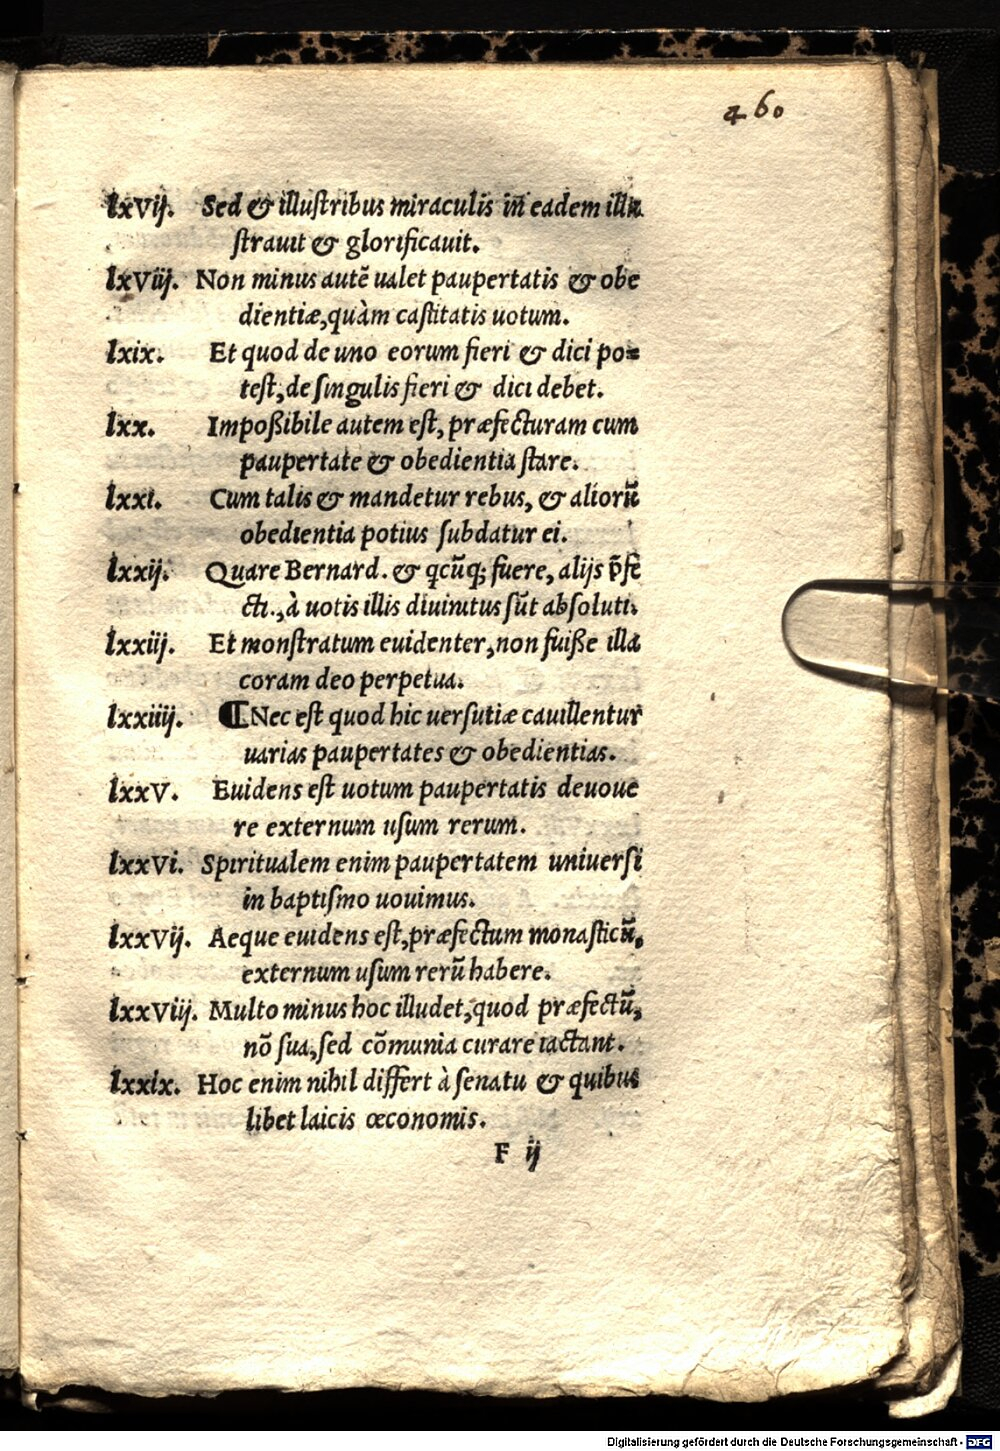 460
lxvij. Sed & illustribus miraculis in eadem illu
strauit & glorificauit.
lxviij. Non minus autē ualet paupertatis & obe
dientiæ, quàm castitatis uotum.
lxix. Et quod de uno eorum fieri & dici po=
test, de singulis fieri & dici debet.
lxx. Impoßibile autem est, præfecturam cum
paupertate & obedientia stare.
lxxi. Cum talis & mandetur rebus, & aliorū
obedientia potius subdatur ei.
lxxij. Quare Bernard. & qcūq; fuere, alijs p̄fe
cti., à uotis illis diuinitus sūt absoluti.
lxxiij. Et monstratum euidenter, non fuiße illa
coram deo perpetua.
lxxiiij. ¶ Nec est quod hic uersutiæ cauillentur
uarias paupertates & obedientias.
lxxv. Euidens est uotum paupertatis deuoue
re externum usum rerum.
lxxvi. Spiritualem enim paupertatem uniuersi
in baptismo uouimus.
lxxvij. Aeque euidens est, præfectum monasticū,
externum usum rerū habere.
lxxviij. Multo minus hoc illudet, quod præfectū,
nō sua, sed cōmunia curare iactant.
lxxix. Hoc enim nihil differt à senatu & quibus
libet laicis œconomis.
F ij
Digitalisierung gefördert durch die Deutsche Forschungsgemeinschaft - DFG